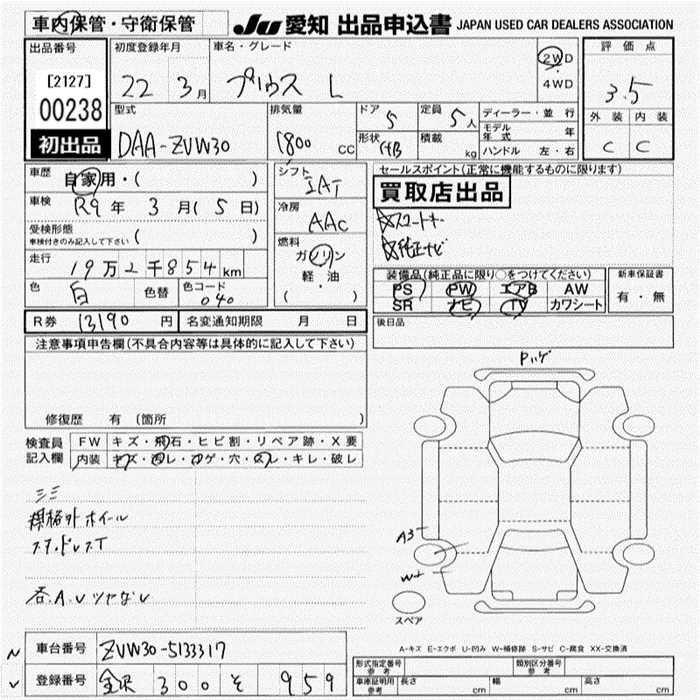 車内保管・守衛保管
JU 愛知 出品申込書 JAPAN USED CAR DEALERS ASSOCIATION
出品番号 初度登録年月 車名・グレード 2WD ・ 4WD 評価点
[2127] 00238 22 3月 プリウス L 3.5
初出品
型式 排気量 ドア 定員 ディーラー・並行 外装 内装
DAA-ZVW30 1800 CC 5 5人 C C
形状 HB 積載 kg モデル年式 年
ハンドル 左・右
車歴 自家用・( ) シフト IAT
車検 R9年 3月(5日) 冷房 AAC
受検形態 車検付きのみ記入して下さい ( )
燃料 ガソリン 軽・油 ( )
走行 19万2千854km
色 白 色替 色コード 040
R券 13190円 名変通知期限 月 日
セールスポイント(正常に機能するものに限ります)
買取店出品
スマートキー
純正ナビ
装備品(純正品に限り○をつけてください) 新車保証書
PS PW エアB AW 有・無
SR ナビ TV カワシート
後日品
注意事項申告欄(不具合内容等は具体的に記入して下さい)
修復歴 有 (箇所 )
検査員記入欄 FW キズ・飛石・ヒビ割・リペア跡・X要
内装 キズ・汚レ・コゲ・穴・スレ・キレ・破レ
シミ
規格外ホイール
スタッドレスT
各A.Uツヤなし
Pハゲ
A3
W
スペア
A-キズ E-エクボ U-凹み W-補修跡 S-サビ C-腐食 XX-交換済
車台番号 ZVW30-5133317
登録番号 金沢 300 そ 959
形式指定番号 参考 類別区分番号 参考
車庫証明用 参考 長さ cm 幅 cm 高さ cm